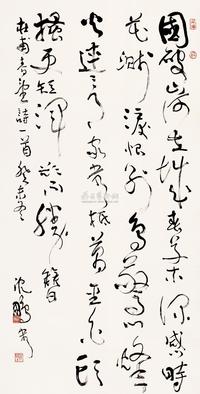 國破山河在城春草木深感時
花濺淚恨別鳥驚心烽
火連三月家書抵萬金白頭
搔更短渾欲不勝簪
杜甫春望詩一首癸未
沈鵬